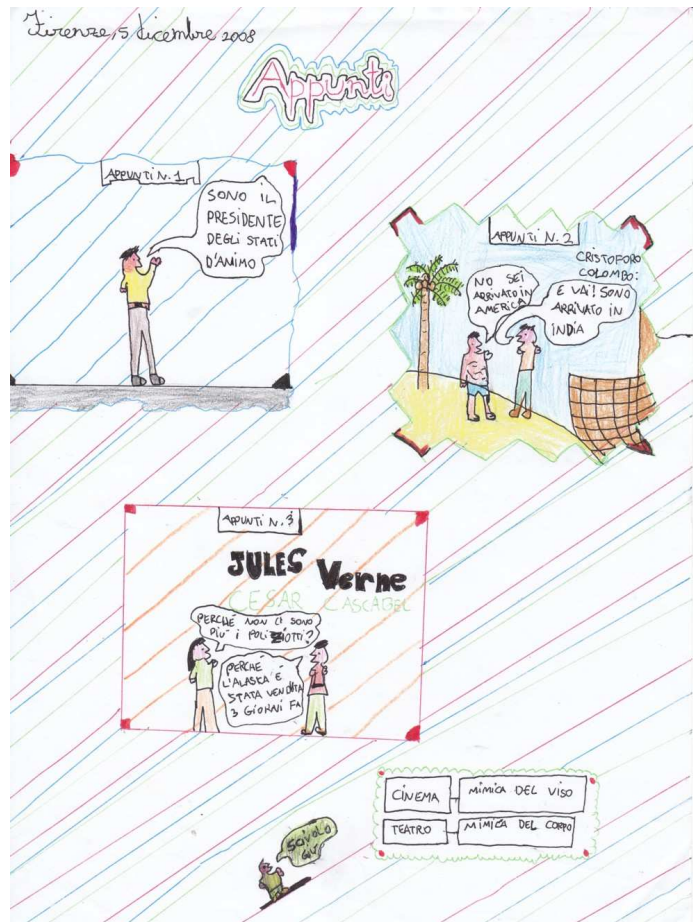 Firenze, 5 dicembre 2008
Appunti
APPUNTI N. 1
SONO IL
PRESIDENTE
DEGLI STATI
D'ANIMO
APPUNTI N. 2
CRISTOFORO
COLOMBO:
NO SEI
ARRIVATO IN
AMERICA
E VAI! SONO
ARRIVATO IN
INDIA
APPUNTI N. 3
JULES Verne
CESAR CASCABEL
PERCHÉ NON CI SONO
PIÙ I POLIZIOTTI?
PERCHÉ
L'ALASKA È
STATA VENDUTA
3 GIORNI FA
CINEMA MIMICA DEL VISO
TEATRO MIMICA DEL CORPO
SCIVOLO
GIÙ